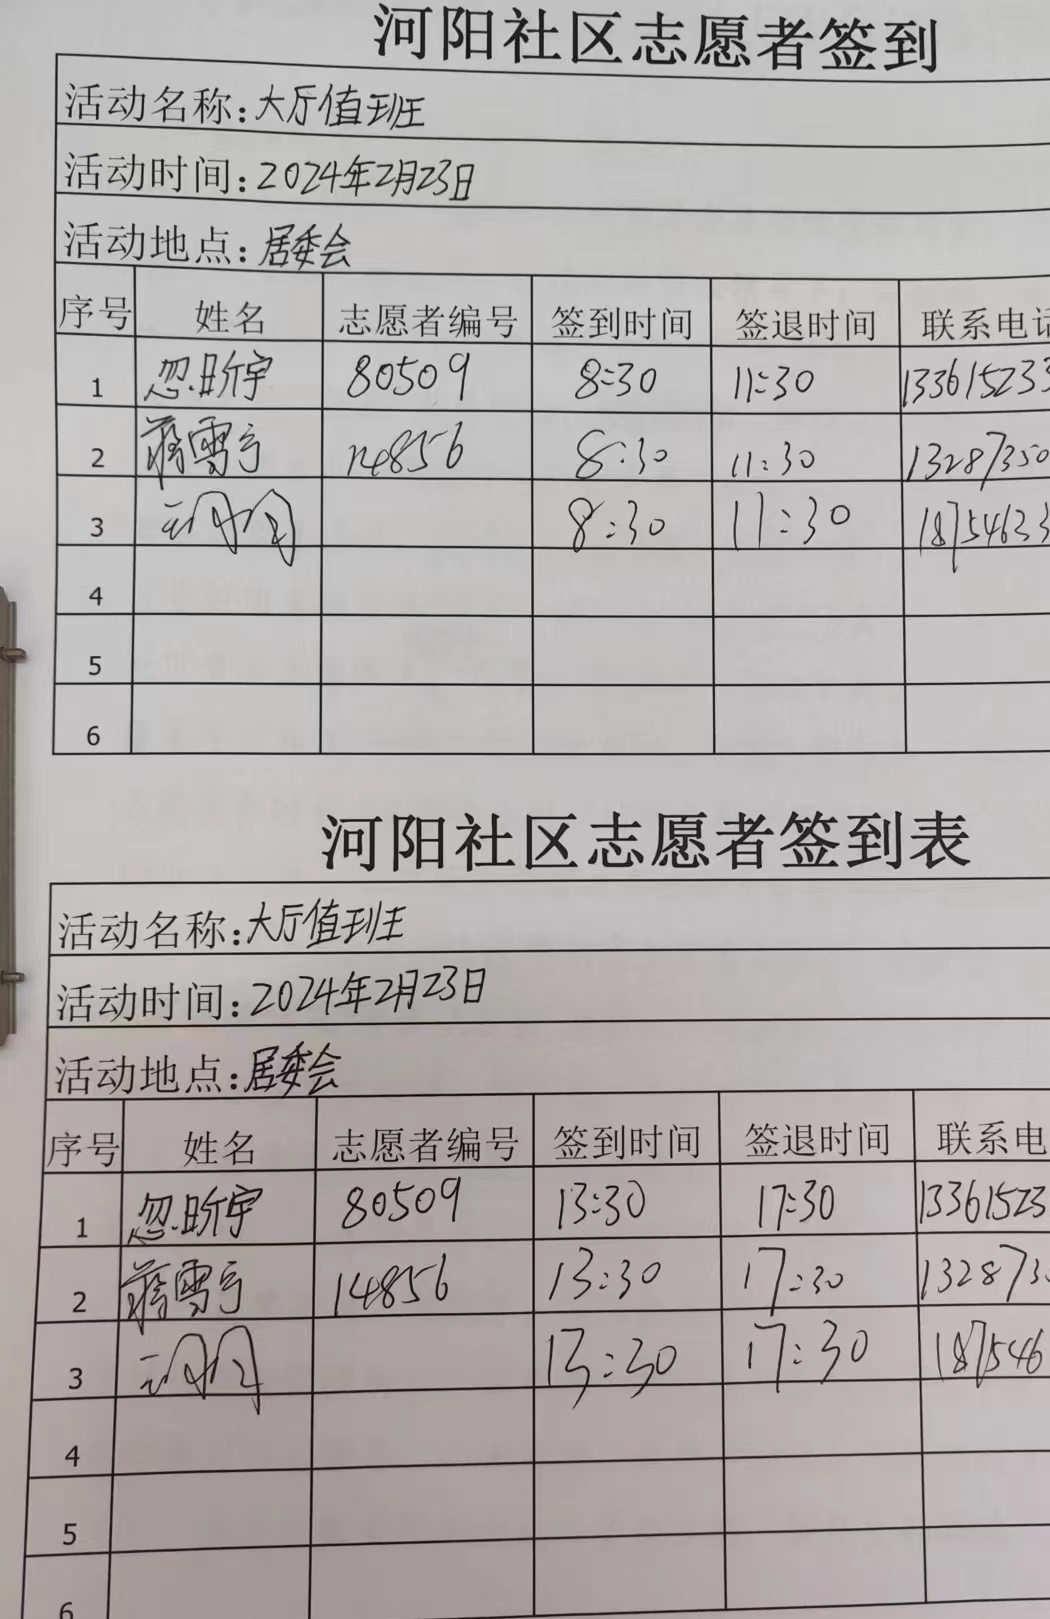 河阳社区志愿者签到
活动名称:大厅值班
活动时间:2024年2月23日
活动地点:居委会
序号 姓名 志愿者编号 签到时间 签退时间 联系电话
1 忽昕宇 80509 8:30 11:30 133615233
2 蒋雪亨 14856 8:30 11:30 13287350
3 8:30 11:30 18754633
4
5
6
河阳社区志愿者签到表
活动名称:大厅值班
活动时间:2024年2月23日
活动地点:居委会
序号 姓名 志愿者编号 签到时间 签退时间 联系电
1 忽昕宇 80509 13:30 17:30 13361523
2 蒋雪亨 14856 13:30 17:30 132873
3 13:30 17:30 187546
4
5
6